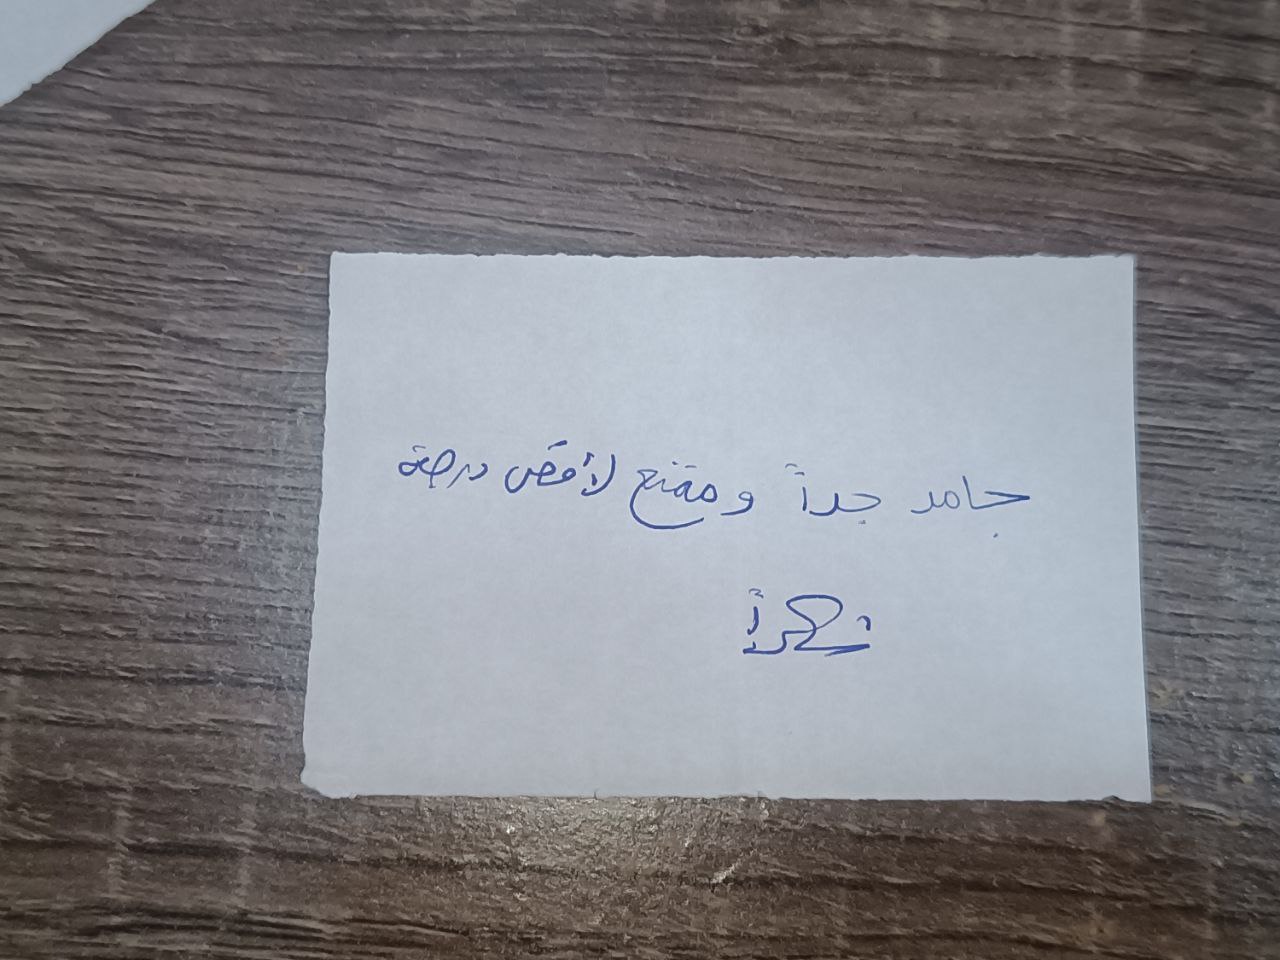 جامد جداً و مقنع لأقصى درجة
شكراً